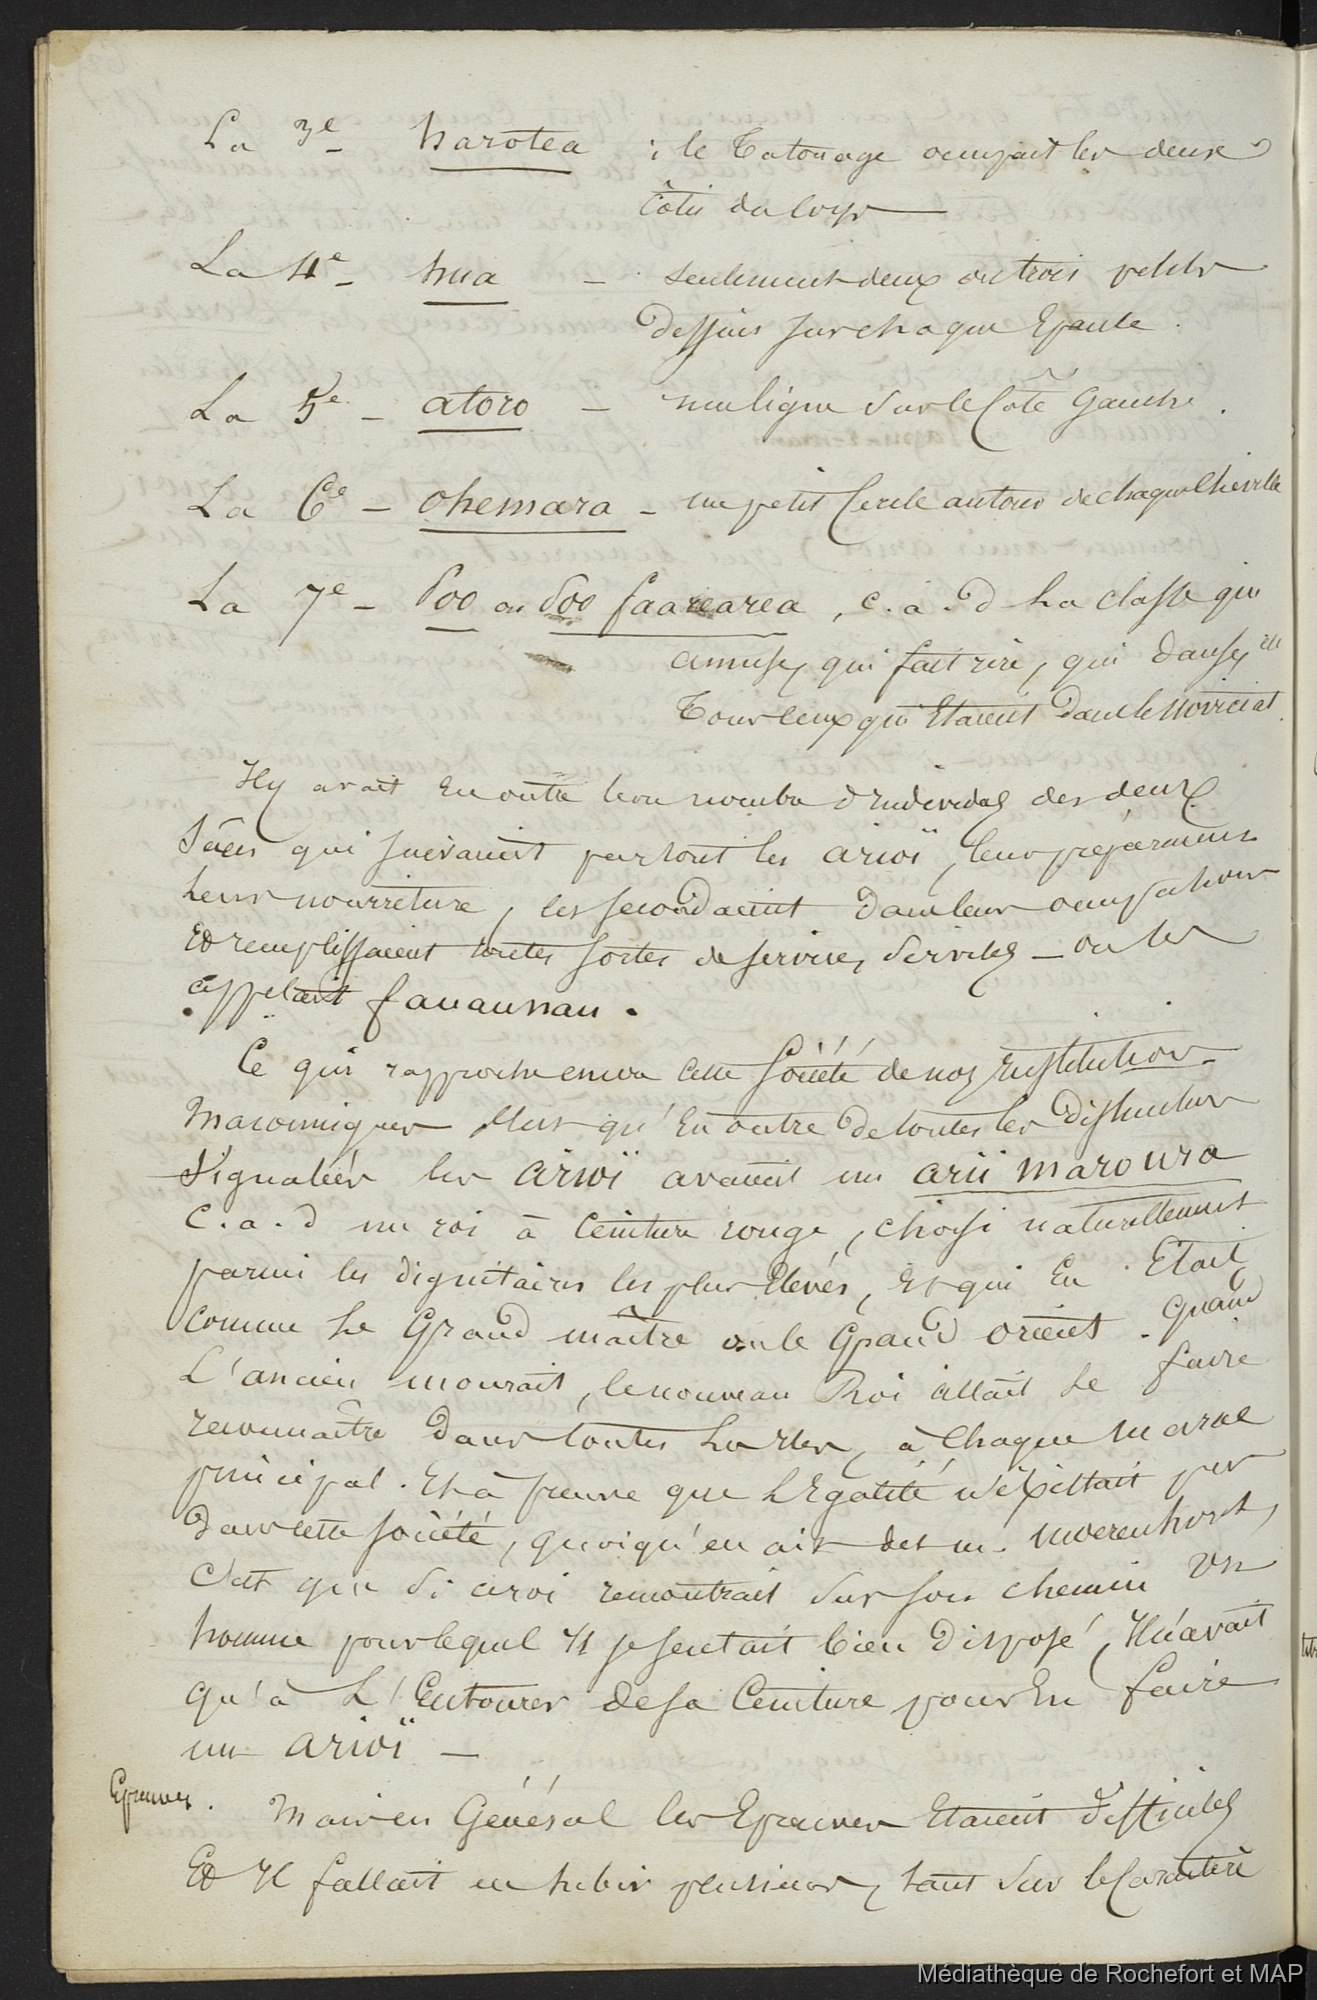 La 3e - harotea ; le tatouage occupait les deux
côtés du corps —
La 4e - hua - seulement deux ou trois petits
dessins sur chaque Epaule.
La 5e - atoro - une ligne sur le Côté Gauche.
La 6e - ohemara - un petit Cercle autour de chaque Cheville
La 7e - Poo ou Poo faarearea, c.a.d La classe qui
amuse, qui fait rire, qui danse,
Tous ceux qui Etaient dans le Noviciat.
Il y avait En outre bon nombre d'Individus des deux
Sexes qui suivaient partout les arioï, leur préparaient
leur nourriture, les secondaient dans leurs occupations
Et remplissaient toutes sortes de services serviles — on les
appelait fanaunau.
Ce qui rapproche encore cette Société de nos Institutions
Maçonniques c'est qu'En outre de toutes les distinctions
signalées les arioï avaient un arii maroura
c.a.d un roi à Ceinture rouge, choisi naturellement
parmi les dignitaires les plus Elevés, Et qui En Etait
comme Le Grand maître ou le Grand Orient. Quand
L'ancien mourait, le nouveau Roi allait se faire
reconnaître dans toutes Les Iles, à Chaque marae
principal. Et à preuve que L'Egalité n'existait pas
dans cette société, quoiqu'en ait dit m. Moerenhout,
C'est que si ce roi rencontrait sur son chemin un
homme pour lequel Il se sentait bien disposé, Il n'avait
qu'à L'Entourer de sa Ceinture pour En faire
un arioï —
Epreuves. Mais en Général les Epreuves Etaient difficiles
Et Il fallait en subir plusieurs, tant sur le Caractère
Médiathèque de Rochefort et MAP